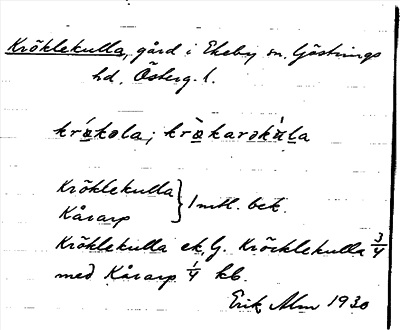 Kröklekulla, gård i Ekeby sn. Göstrings
hd, Österg. l.
krǿkola; krø̀karskúla
Kröklekulla } 1 mtl. bet.
Kårarp
Kröklekulla ek, G. Kröcklekulla 3/4
med Kårarp 1/4 kb.
Erik Alm 1930